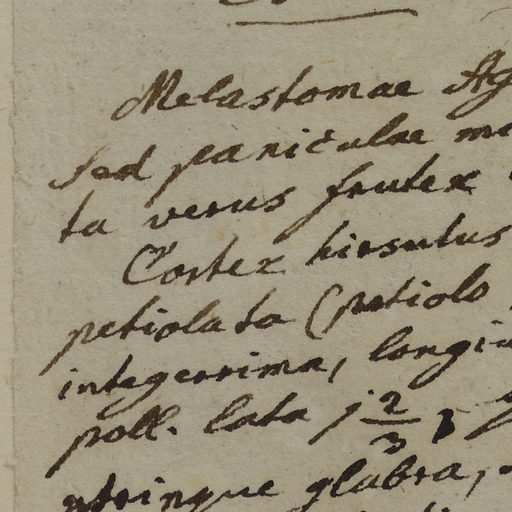 Melastomae Ag
sed paniculae ma
ta verus frutex
Cortex hirsutus
petiolata (petiolo
integerrima, longiu
poll. lata j 2/3,
utrinque glabra,